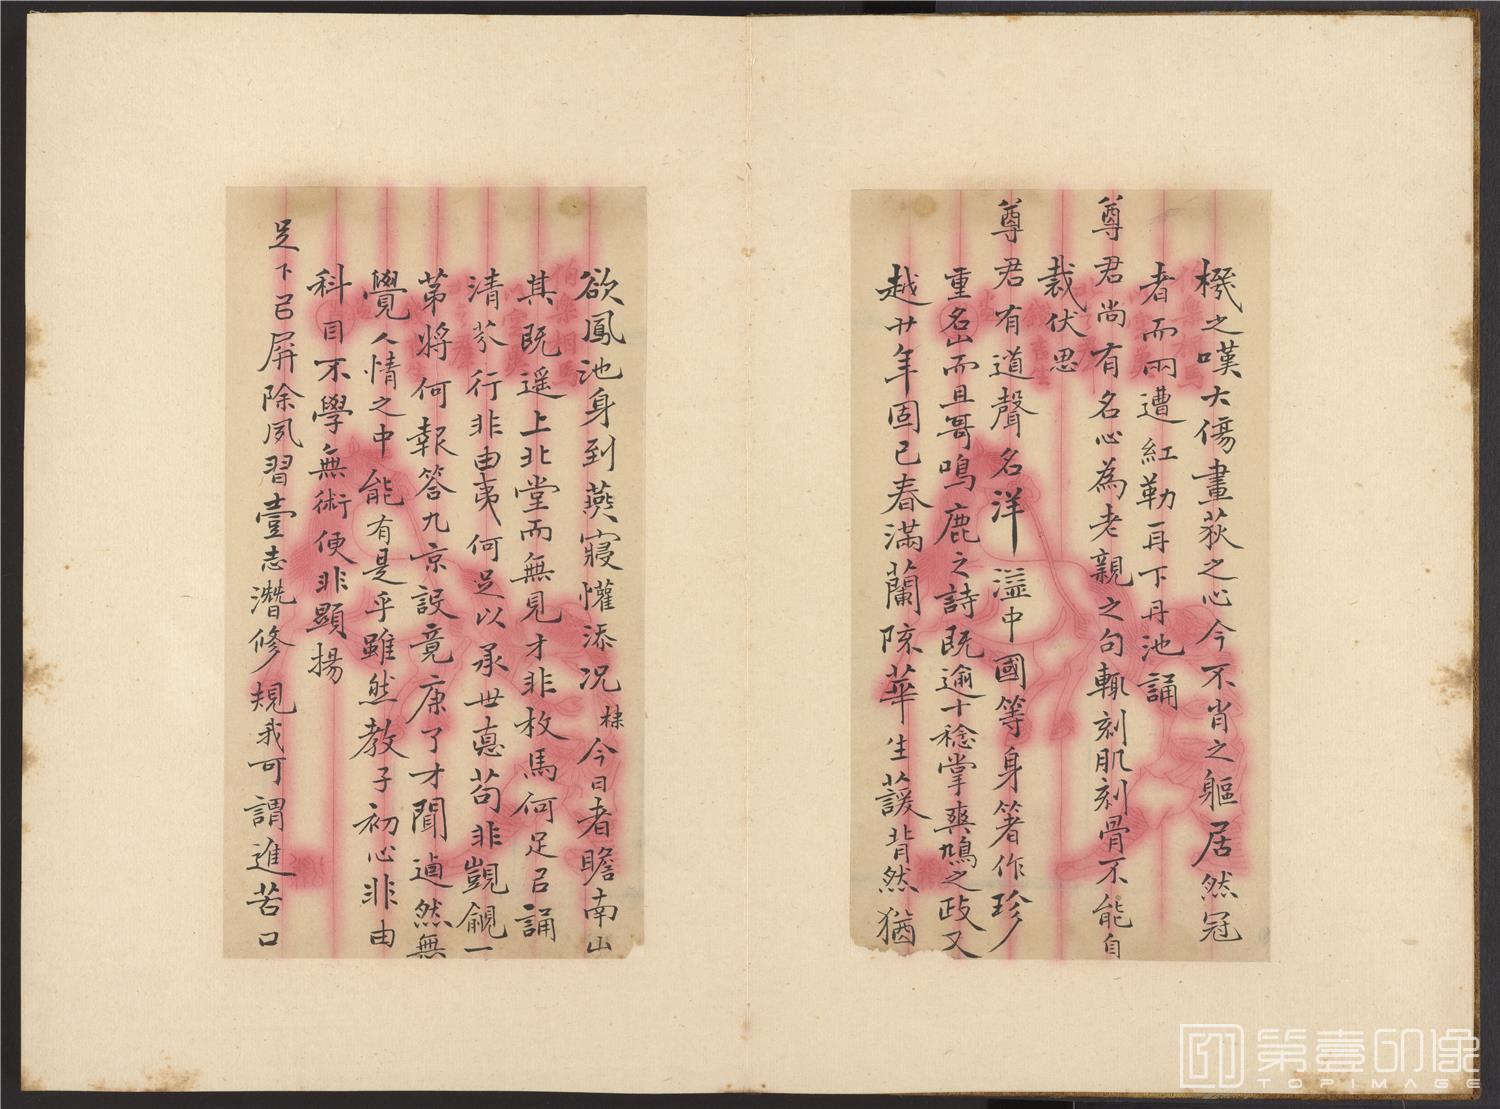 機之嘆大傷畫荻之心今不肖之軀居然冠
者而兩遭紅勒再下丹池誦
尊君尚有名心為老親之句輒刻肌刻骨不能自
裁伏思
尊君有道聲名洋溢中國等身箸作珍
重名山而且哥鳴鹿之詩既逾十稔掌爽鳩之政又
越廿年固已春滿蘭陔華生護背然猶
欲鳳池身到燕寢懽添况棣今日者瞻南山
其既遥上北堂而無見才非枚馬何足以誦
清芬行非由夷何足以承世惪苟非覬覦一
苐將何報答九京設竟康了才聞逌然無
覺人情之中能有是乎雖然教子初心非由
科目不學無術便非顯揚
足下㠯屏除夙習壹志潛修規我可謂進苦口
第壹印像
TOPIMAGE